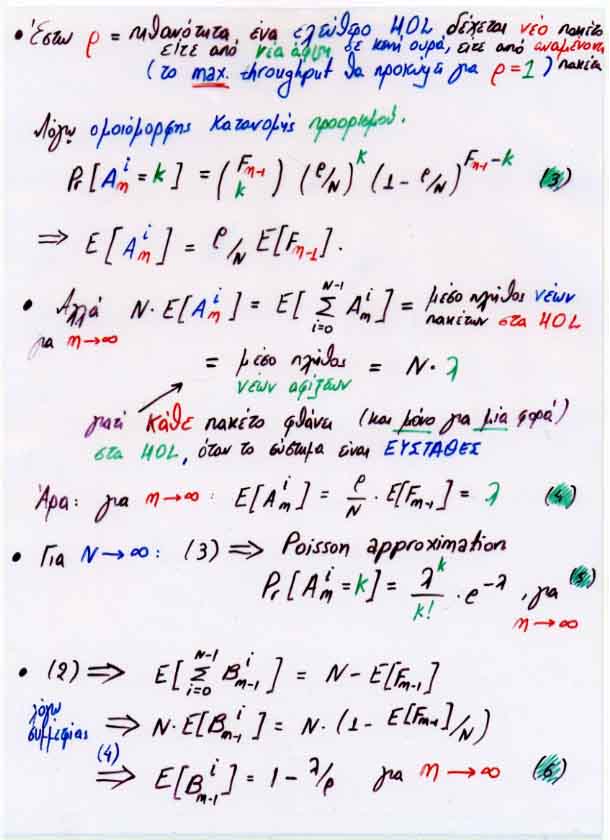 • Έστω ρ = πιθανότητα, ένα ελεύθερο HOL δέχεται νέο πακέτο
είτε από νέα άφιξη σε κενή ουρά, είτε από αναμένοντα
(το max. throughput θα προκύψει για ρ=1) πακέτα
Λόγω ομοιόμορφης κατανομής προορισμού.
Pr[A_m^i = k] = (F_{m-1} k) (ρ/N)^k (1 - ρ/N)^{F_{m-1}-k} (3)
⇒ E[A_m^i] = ρ/N E[F_{m-1}].
• Αλλά N·E[A_m^i] = E[∑_{i=0}^{N-1} A_m^i] = μέσο πλήθος νέων
για m→∞ πακέτων στα HOL
= μέσο πλήθος = N·λ
νέων αφίξεων
γιατί κάθε πακέτο φθάνει (και μόνο για μία φορά)
στα HOL, όταν το σύστημα είναι ΕΥΣΤΑΘΕΣ
Άρα: για m→∞: E[A_m^i] = ρ/N · E[F_{m-1}] = λ (4)
• Για N→∞: (3) ⇒ Poisson approximation
Pr[A_m^i = k] = λ^k/k! · e^{-λ}, για (5)
m→∞
• (2) ⇒ E[∑_{i=0}^{N-1} B_{m-1}^i] = N - E[F_{m-1}]
λόγω συμμετρίας ⇒ N·E[B_{m-1}^i] = N·(1 - E[F_{m-1}]/N)
(4) ⇒ E[B_{m-1}^i] = 1 - λ/ρ για m→∞ (6)